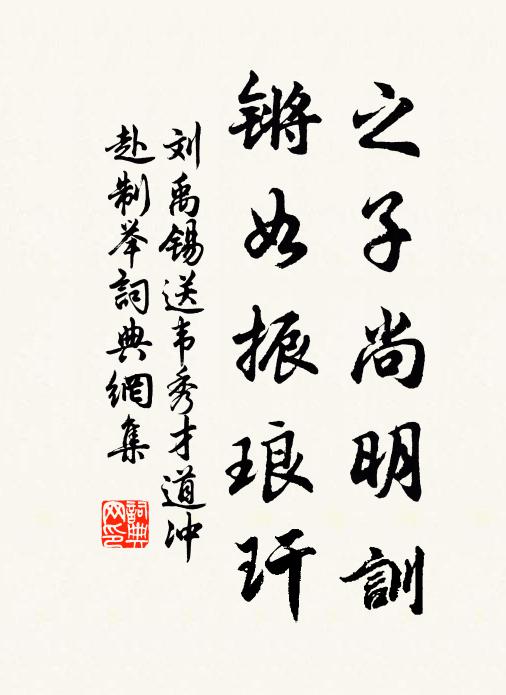 之子尚明訓
锵如振琅玕
刘禹锡送韦秀才道冲
赴制举詞典網集
詞典网印